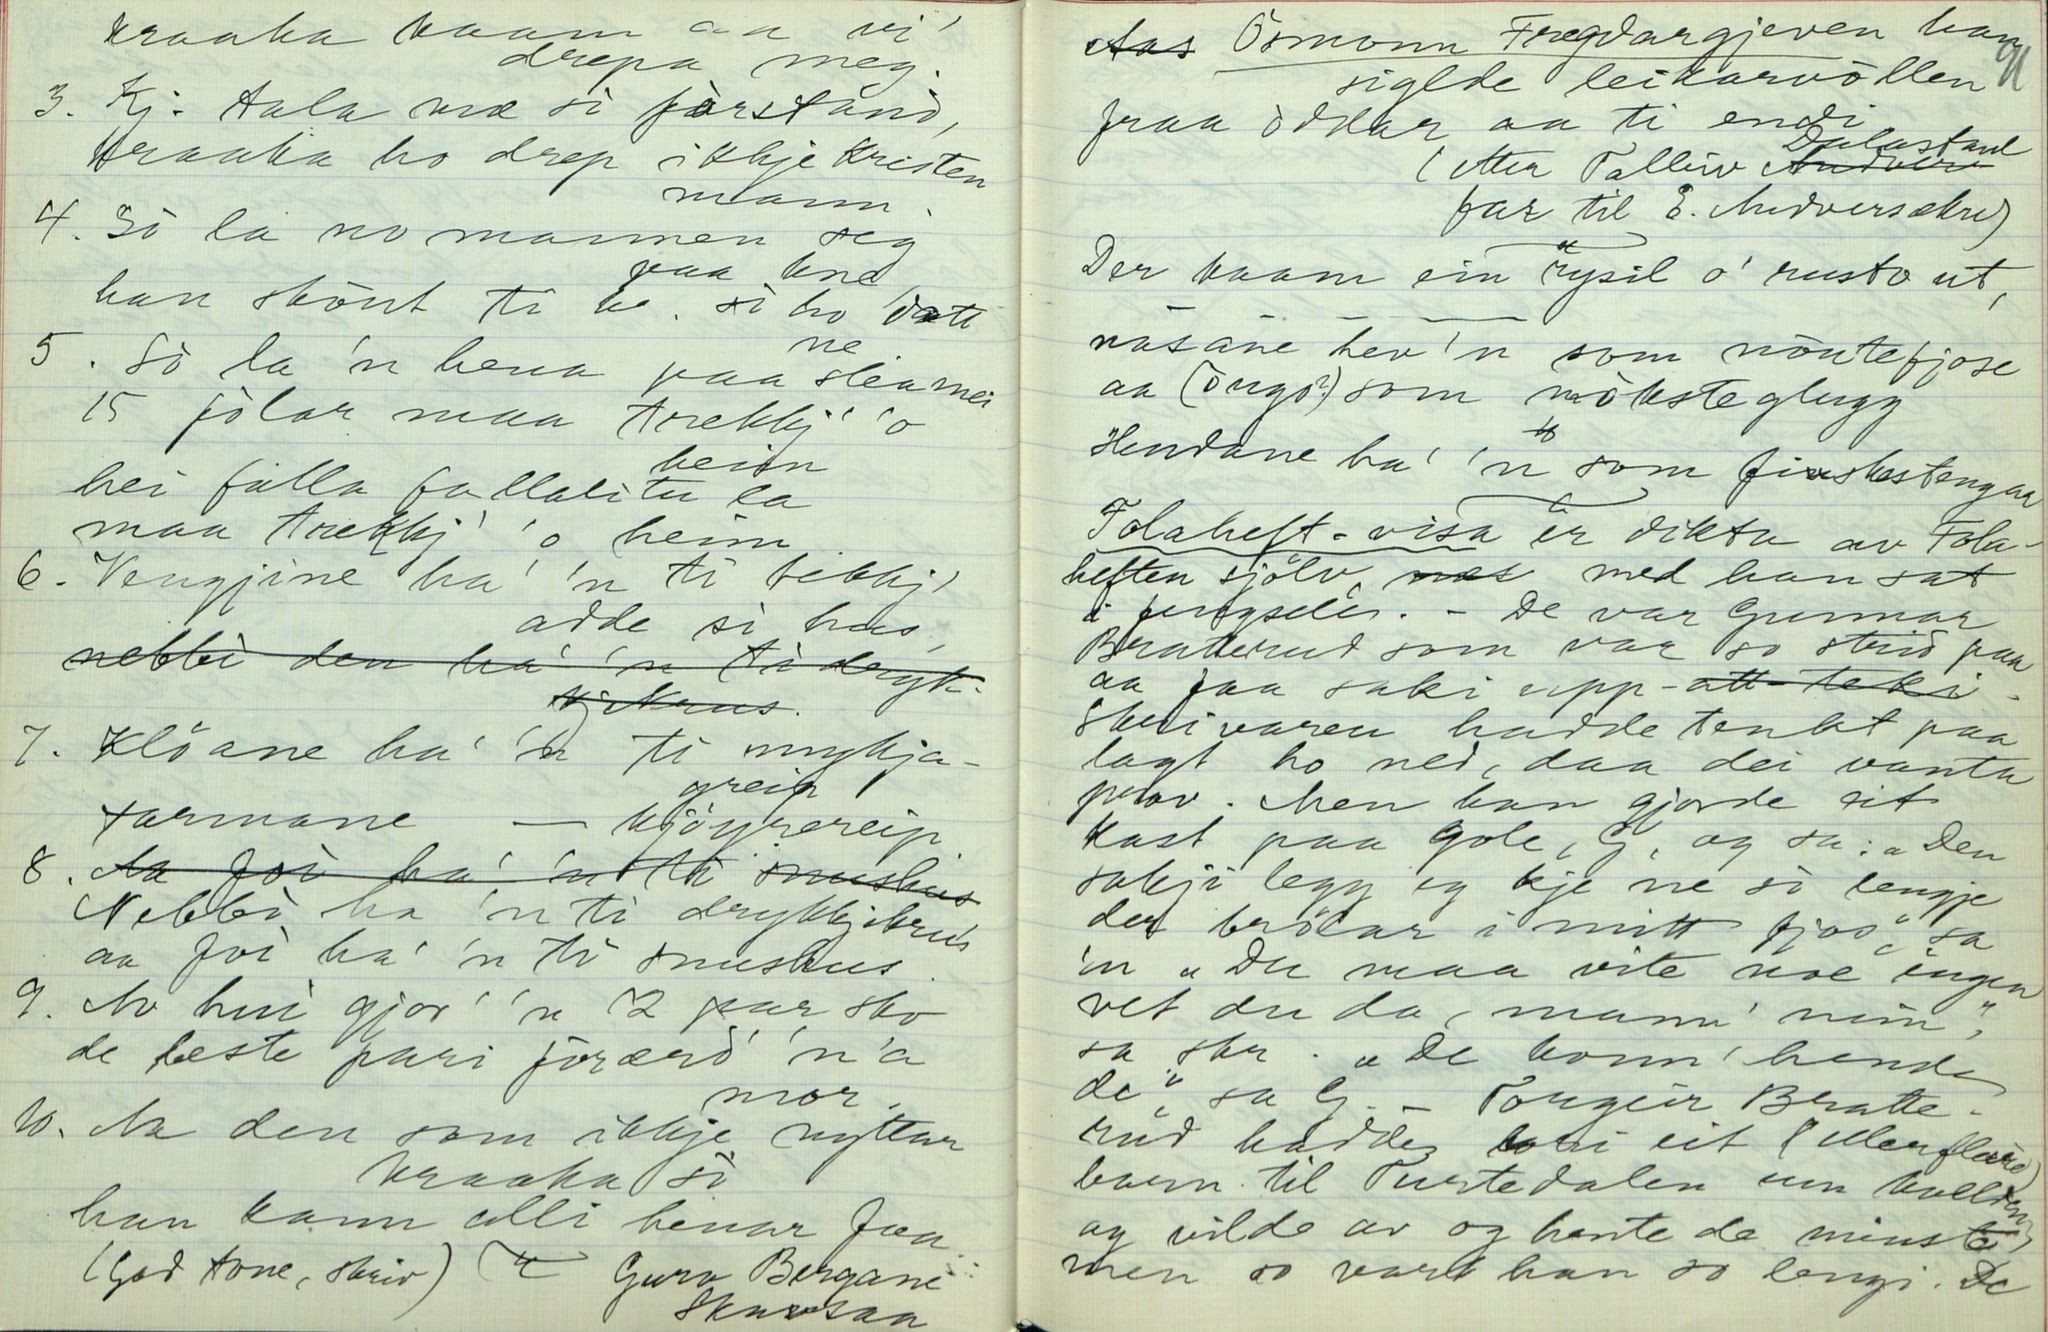 kraaka kaam aa vi'
drepa meg.
3. Kj: tala mæ si fòrstand,
kraaka ho drep ikkje kristen
mann.
4. Så la no mannen seg
paa kne,
han skòut ti ke. så ho datt
ne.
5. Sò la 'n hena paa slea mei
15 fòlar maa trekkj' 'o
heim
hei falla fallalitu la
maa trekkj' 'o heim
6. Vengjine ha' 'n ti tekkj'
adde si hus,
nebbi den ha' 'n ti drykk-
kjikrus.
7. Klôane ha' 'n ti mykja-
greip
tarmane — kjöyrereip
8. Aa foi ha' 'n ti snushus
Nebbi ha 'n ti drykkjikrus
aa foi ha' 'n ti snushus.
9. Av hui gjor' 'n 12 par sko
de beste pari fòrærd' 'n 'a
mor.
10. Aa den som ikkje nyttar
kraaka sò
han kann alli henar faa.
(God tone, skriv) Guro Bergane
Skavsaa
Aas Òsmonn Fregdargjeven han
91
siglde leikarvòllen
fraa òddar aa ti endi
Dalastaul
(etter Talleiv
far til E. Midversækre)
Der kaam ein rysil o' rusto ut,
nasane hev'n som nòutefjose
aa (òugo?) som mòksteglugg
Hendane ha' 'n som fiskestengaa
Folaheft-visa er dikta av Fola-
heften sjölv, med han sat
i fengselet. - De var Gunnar
Bratterud som var so strid paa
aa faa saki upp - att teki -
Skrivaren hadde tenkt paa
lagt ho ned, daa dei vanta
prov. Men han gjorde eit
kast paa gole, G, og sa: "Den
sakji legg eg kje ne så lengje
der brölar i mitt fjos", sa
'n "Du maa vite noe ingen
vet du da, mann' min",
sa skr. "De konn' henda
de", sa G. - Torgeir Bratte-
rud hadde bori eit (eller fleire)
born til Turtedalen um kvelden,
og vilde av og hente de minste
men so vart han so lengi. De